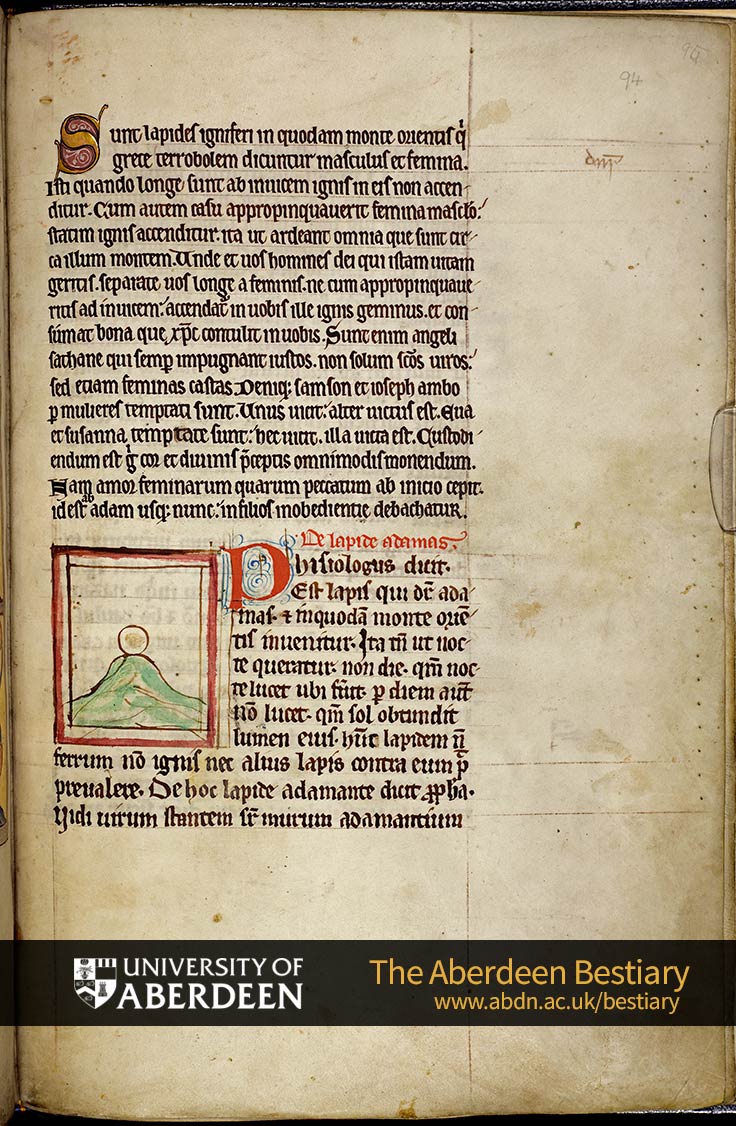 95
94
Sunt lapides igniferi in quodam monte orientis qi
grece terrobolem dicuntur masculus et femina.
Isti quando longe sunt ab inuicem ignis in eis non accen-
ditur. Cum autem casu appropinquauerit femina masclo:
statim ignis accenditur. ita ut ardeant omnia que sunt cir-
ca illum montem. Unde et uos homines dei qui istam uitam
geritis. separate uos longe a feminis. ne cum appropinquaue-
ritis ad inuicem: accendat in uobis ille ignis geminus. et con-
sumat bona que xp̄c contulit in uobis. Sunt enim angeli
sathane qui semp impugnant iustos. non solum scōs uiros:
sed etiam feminas castas. Deniq; samson et ioseph ambo
p mulieres temptati sunt. Unus uicit: alter uictus est. Eua
et susanna temptate sunt: hec uicit. illa uicta est. Custodi-
endum est g cor et diuinis p̄ceptis omnimodis monendum.
Nam amor feminarum quarum peccatum ab initio cepit.
id est ab adam usq; nunc: in filios inobedientie debachatur.
De lapide adamas.
Phisiologus dicit.
Est lapis qui dr̄ ada
mas. ⁊ in quodā monte oriē
tis inuenitur. Ita tn̄ ut noc-
te queratur. non die. qm̄ noc
te lucet ubi fuit. p diem aut̄
nō lucet. qm̄ sol obtundit
lumen eius. hūc lapidem n̄
ferrum nō ignis nec alius lapis contra eum p̄
preualere. De hoc lapide adamante dicit ꝓpha.
Uidi uirum stantem sr̄ murum adamantium
UNIVERSITY OF
ABERDEEN
The Aberdeen Bestiary
www.abdn.ac.uk/bestiary